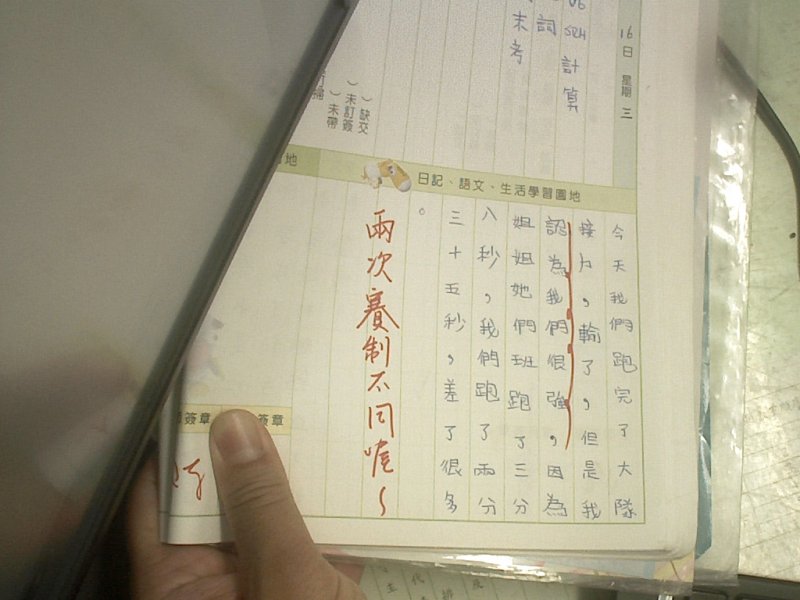 16日 星期三
計算
詞
末考
缺交
未訂簽
未帶
日記、語文、生活學習園地
今天我們跑完了大隊
接力,輸了,但是我
認為我們很強,因為
姐姐她們班跑了三分
八秒,我們跑了兩分
三十五秒,差了很多
。
兩次賽制不同喔~
地
簽章
簽章